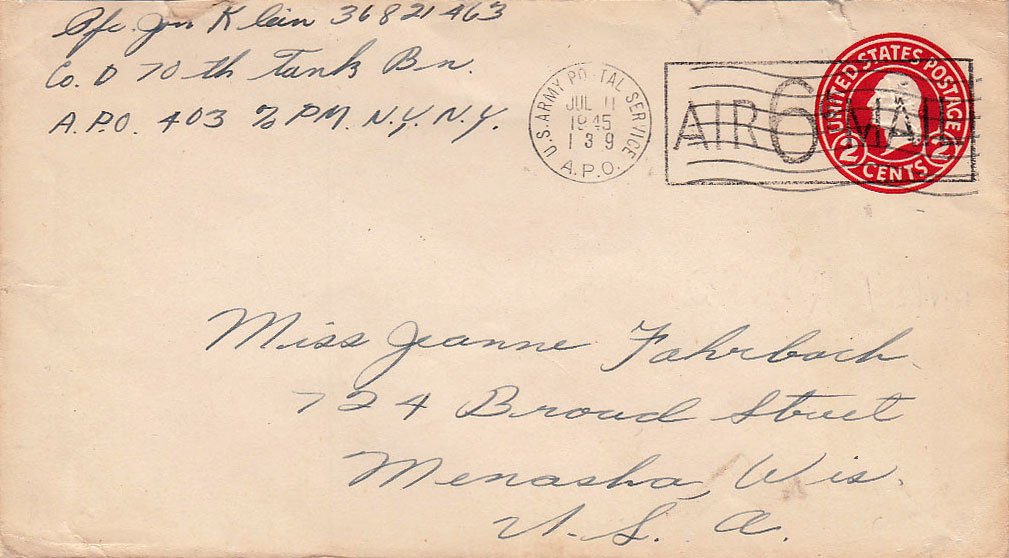 Pfc. Jon Klein 36821463
Co. D 70th Tank Bn.
A.P.O. 403 % PM. N.Y. N.Y.
U.S. ARMY POSTAL SERVICE
JUL 11
1945
1 39
A.P.O.
AIR 6¢ MAIL
UNITED STATES POSTAGE
2 CENTS 2
Miss Jeanne Fahrbach
724 Broad Street
Menasha, Wis.
U. S. A.